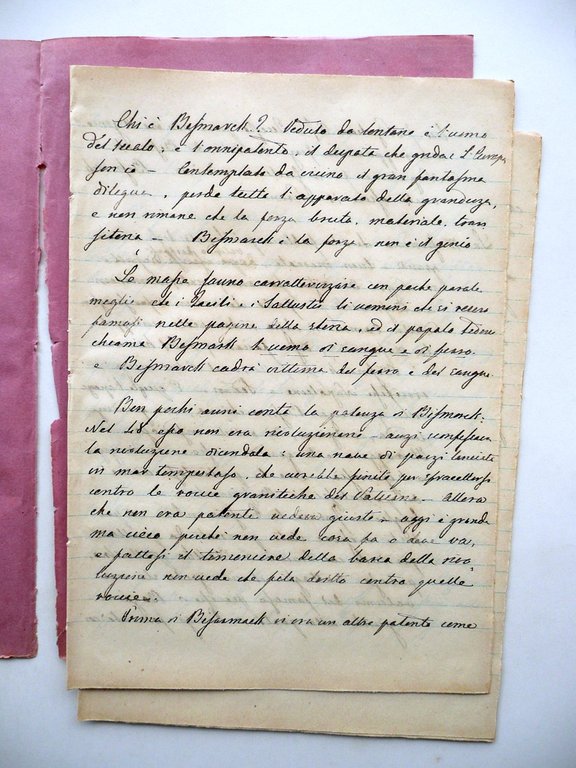 Chi è Bismarck? Veduto da lontano è l'uomo
del secolo; è l'onnipotente, il despota che grida: L'Europa
son io — Contemplato da vicino il gran fantasma
dilegua, perde tutto l'apparato della grandezza,
e non rimane che la forza bruta, materiale, tran
sitoria — Bismarck è la forza non è il genio
Le masse sanno carratterizzare con poche parole
meglio che i Taciti, i Sallusti li uomini che si resero
famosi nelle pagine della storia, ed il popolo tedesco
chiama Bismark l'uomo di sangue e di ferro.
e Bismarck cadrà vittima del ferro e del sangue
Ben pochi anni conta la potenza di Bismarck:
Nel 48 esso non era rivoluzionario — anzi confessava
la rivoluzione : una nave di pazzi lanciata
in mar tempestoso, che avrebbe finito per sfracellarsi
contro le roccie granitiche del Vaticano — allora
che non era potente vedeva giusto — oggi è grande
ma cieco perchè non vede cosa fa o dove va,
e fattosi il timoniere della barca della rivo
luzione non vede che fila dritto contro quelle
roccie —
Prima di Bissmarck vi era un altro potente come